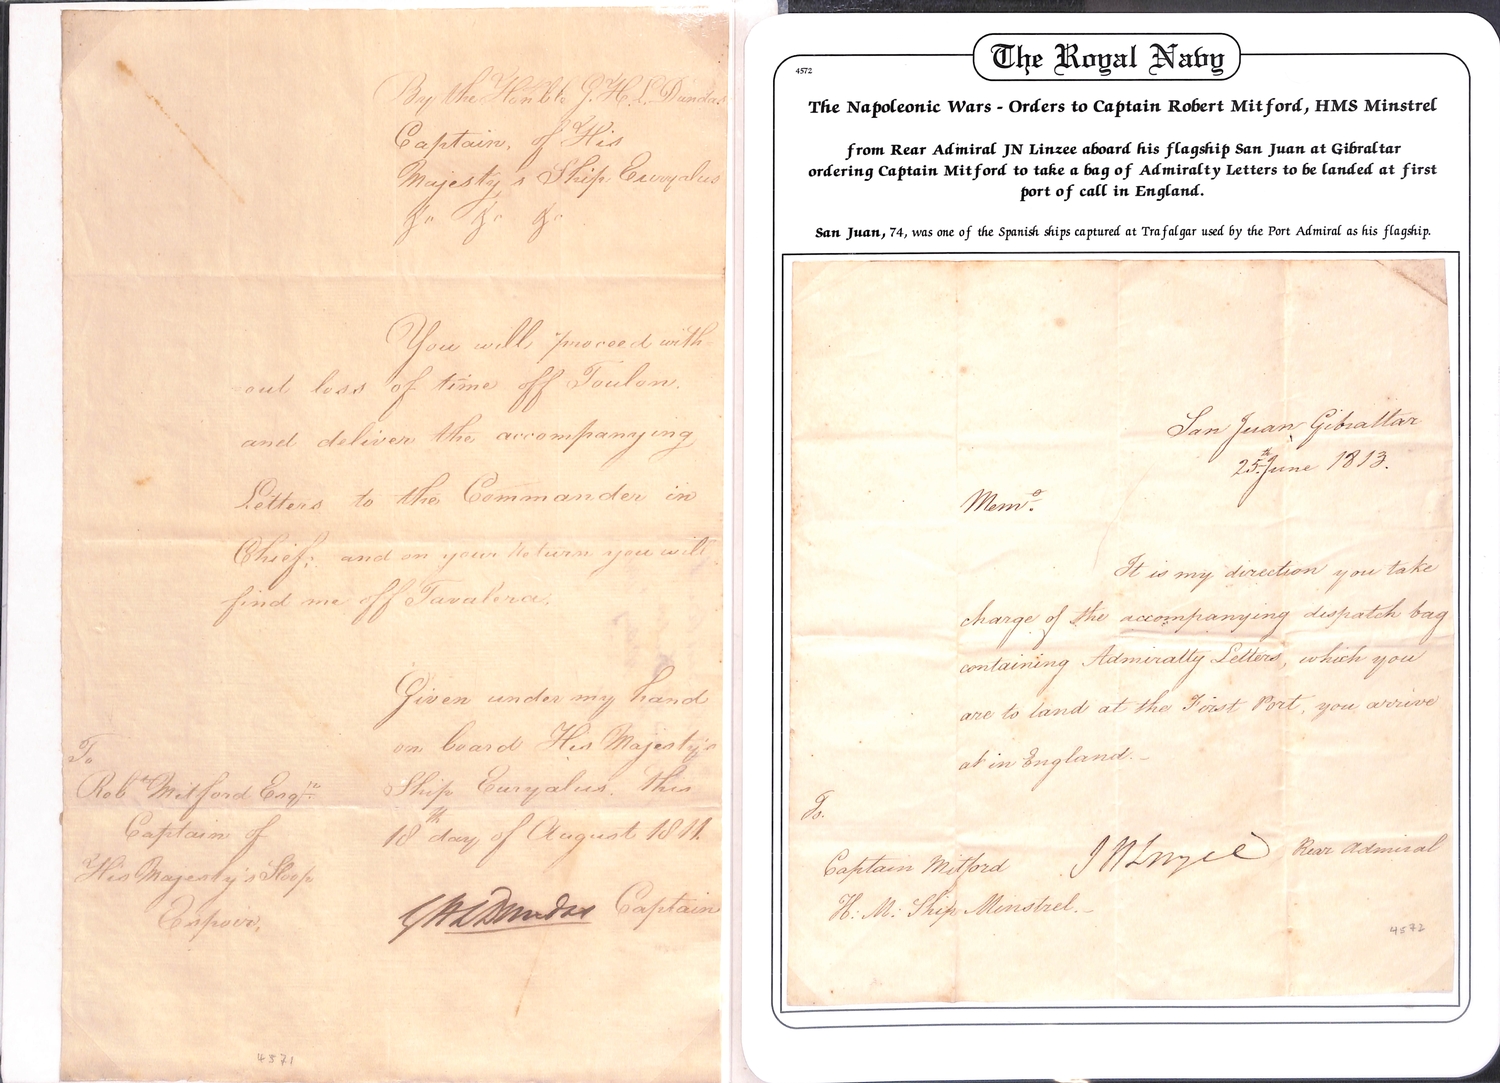 By the Honble G. H. L. Dundas
Captain, of His
Majesty's Ship Euryalus
&c &c &c
You will proceed with-
-out loss of time off Toulon.
and deliver the accompanying
Letters to the Commander in
Chief; and on your Return you will
find me off Tavalera.
Given under my hand
on board His Majesty's
Ship Euryalus. this
18th day of August 1811.
GHLDundas Captain
To
Robt Mitford Esqre
Captain of
His Majesty's Sloop
Espoir,
4571
The Royal Navy
4572
The Napoleonic Wars - Orders to Captain Robert Mitford, HMS Minstrel
from Rear Admiral JN Linzee aboard his flagship San Juan at Gibraltar
ordering Captain Mitford to take a bag of Admiralty Letters to be landed at first
port of call in England.
San Juan, 74, was one of the Spanish ships captured at Trafalgar used by the Port Admiral as his flagship.
San Juan Gibraltar
25th June 1813.
Memo.
It is my direction you take
charge of the accompanying dispatch bag
containing Admiralty Letters, which you
are to land at the First Port, you arrive
at in England.-
To.
Captain Mitford
H: M: Ship Minstrel.-
J N Linzee Rear Admiral
4572